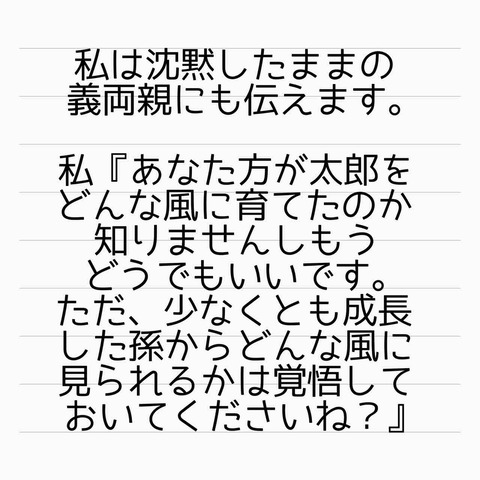 私は沈黙したままの
義両親にも伝えます。
私『あなた方が太郎を
どんな風に育てたのか
知りませんしもう
どうでもいいです。
ただ、少なくとも成長
した孫からどんな風に
見られるかは覚悟して
おいてくださいね？』